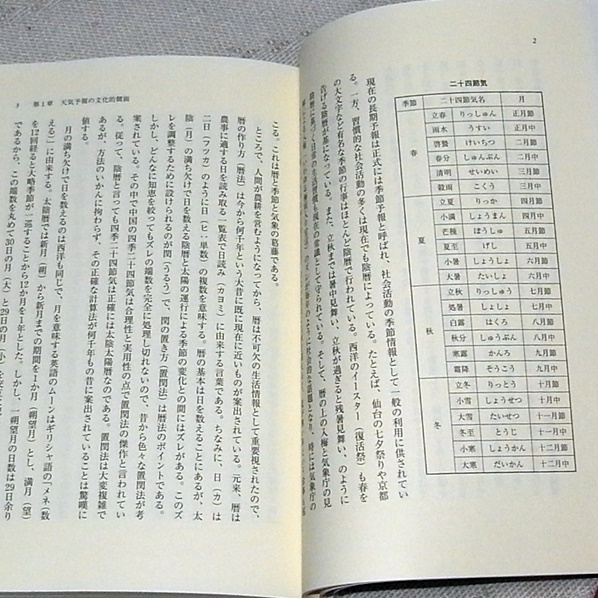 2
二十四節気
季節 二十四節気名 月
春
立春 りっしゅん 正月節
雨水 うすい 正月中
啓蟄 けいちつ 二月節
春分 しゅんぶん 二月中
清明 せいめい 三月節
穀雨 こくう 三月中
夏
立夏 りっか 四月節
小満 しょうまん 四月中
芒種 ぼうしゅ 五月節
夏至 げし 五月中
小暑 しょうしょ 六月節
大暑 たいしょ 六月中
秋
立秋 りっしゅう 七月節
処暑 しょしょ 七月中
白露 はくろ 八月節
秋分 しゅうぶん 八月中
寒露 かんろ 九月節
霜降 そうこう 九月中
冬
立冬 りっとう 十月節
小雪 しょうせつ 十月中
大雪 たいせつ 十一月節
冬至 とうじ 十一月中
小寒 しょうかん 十二月節
大寒 だいかん 十二月中
現在の長期予報は正式には季節予報と呼ばれ、社会活動の季節情報として一般の利用に供されてい
る。一方、習慣的な社会活動の多くは現在でも陰暦によっている。たとえば、仙台の七夕祭りや京都
の大文字など有名な季節の行事はほとんど陰暦で行われている。西洋のイースター（復活祭）も春を
告げる陰暦の行事になっている。また、立秋までは暑中見舞い、立秋が過ぎると残暑見舞い、のように
陰暦に基づく日常の生活習慣も現在の常識として守られている。そして、暦の上の入梅と気象庁の見
3 第1章 天気予報の文化的側面
こる。これは暦と季節と気象の葛藤である。
ところで、人間が農耕を営むようになってから、暦は不可欠の生活情報として重要視されたので、
暦の作り方（暦法）は今から何千年という大昔に既に現在に近いものが案出されている。元来、暦は
農事に適する日を読み取る一覧表で日読み（カヨミ）に由来する言葉である。ちなみに、日（カ）は
二日（フツカ）のように日（ヒ・単数）の複数を意味する。暦の基本は日を数えることにあるが、太
陰（月）の満ち欠けで日を数える陰暦と太陽の運行による季節の変化との間にはズレがある。このズ
レを調整するために設けられるのが閏（うるう）で、閏の置き方（置閏法）は暦法のポイントである。
しかし、どんなに知恵を絞ってもズレの端数を完全に処理し切れないので、昔から色々な置閏法が考
案されている。その中で中国の四季二十四節気は合理性と実用性の点で置閏法の傑作と言われてい
る。従って、陰暦と言っても四季二十四節気は正確には太陰太陽暦なのである。置閏法は大変複雑で
あるが、方法のいかんに拘わらず、その正確な計算法が何千年もの昔に案出されていることは驚嘆に
値する。
月の満ち欠けで日を数えるのは西洋も同じで、月を意味する英語のムーンはギリシャ語の「メネ（数
える）」に由来する。太陰暦では新月（朔）から新月までの期間を1か月（一朔望月）とし、満月（望）
を12回経ると大略季節が一巡することから12か月を1年とした。しかし、一朔望月の日数は29日余り
であるから、この端数を丸めて30日の月（大）と29日の月（小）を